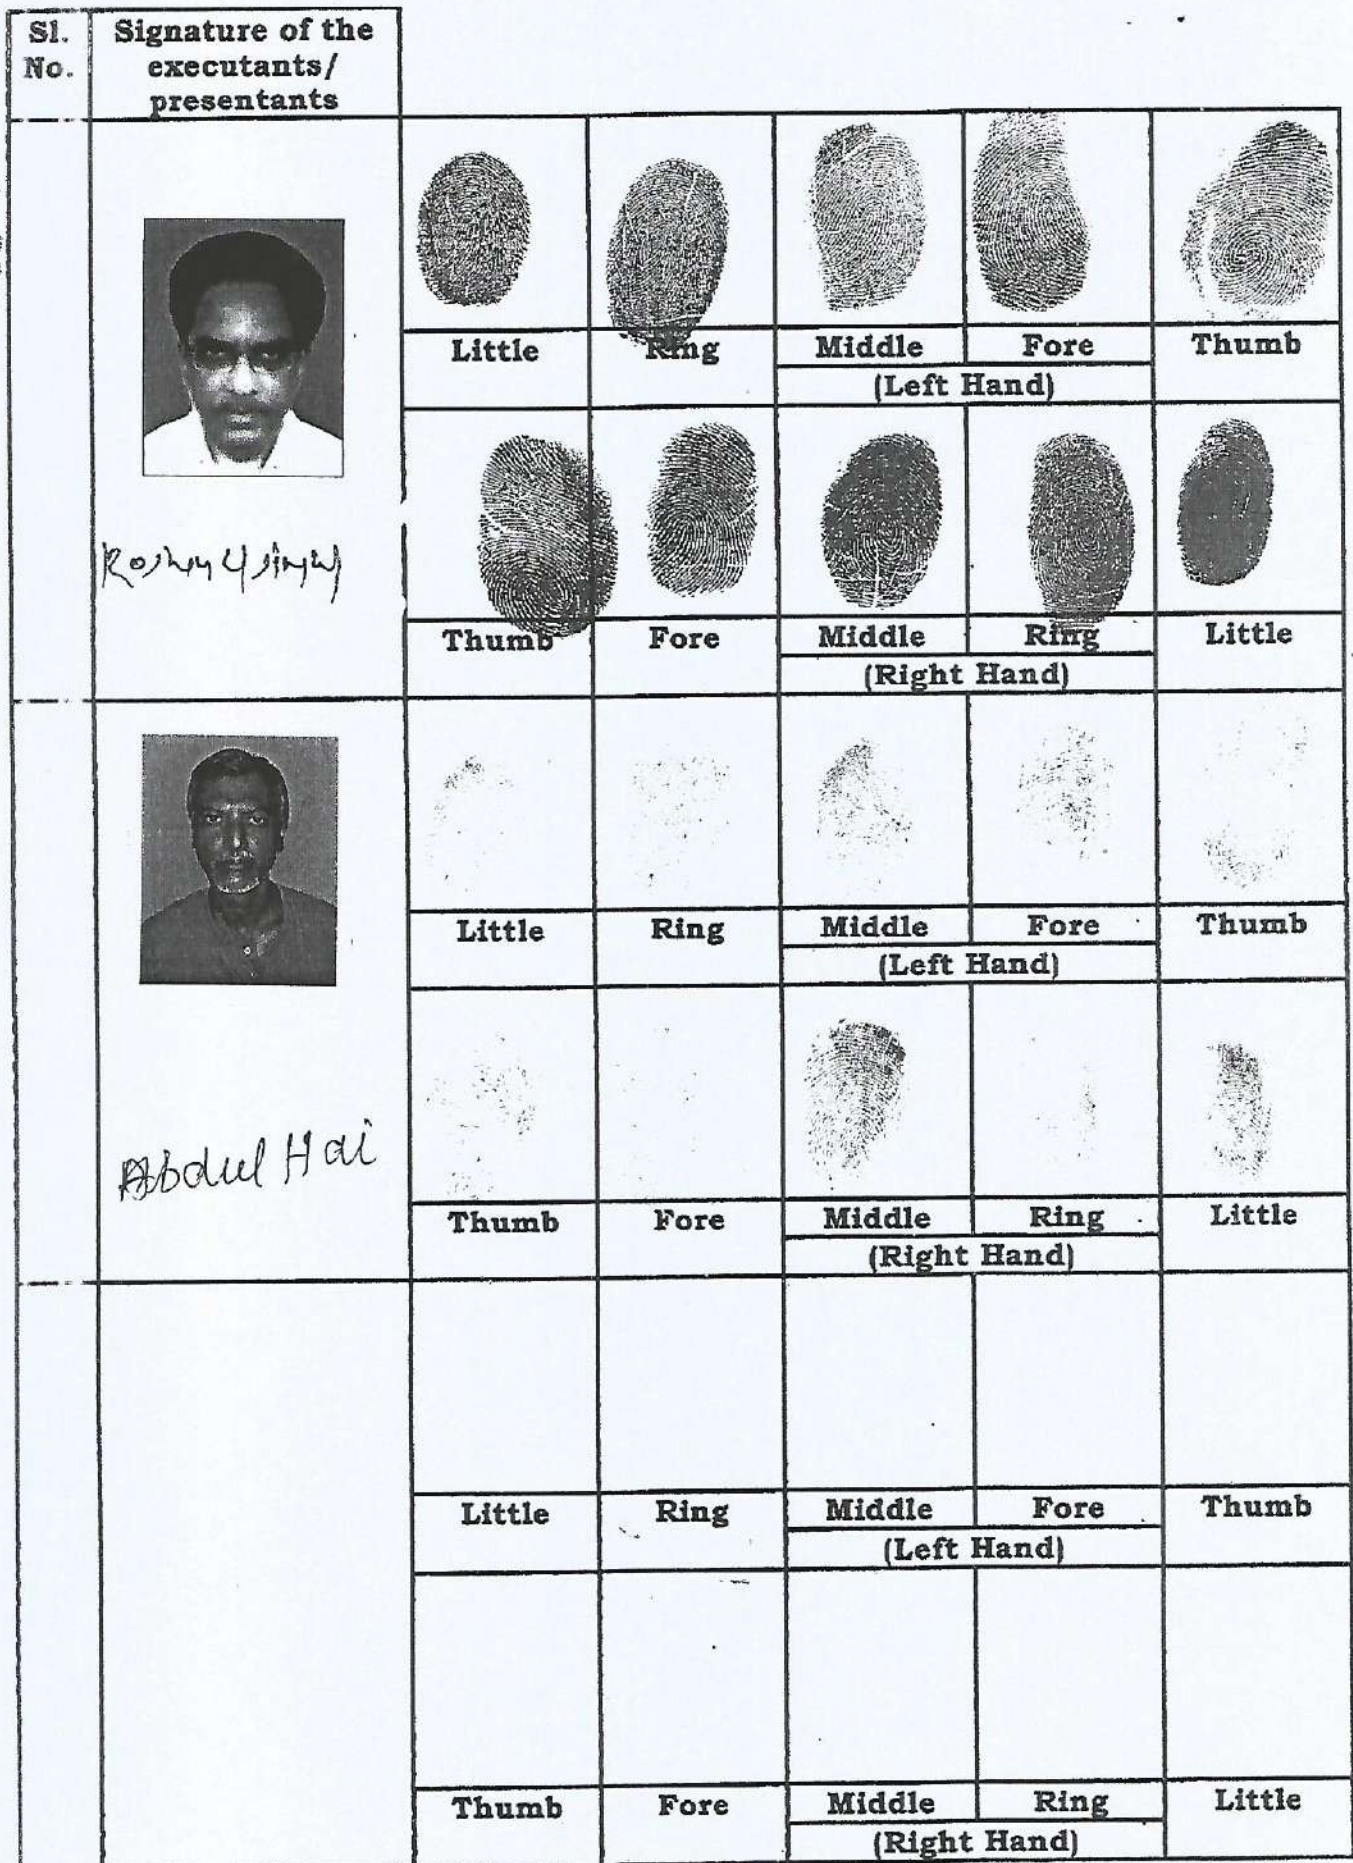 Sl. No.
Signature of the executants/ presentants
Little Ring Middle Fore Thumb
(Left Hand)
Thumb Fore Middle Ring Little
(Right Hand)
Little Ring Middle Fore Thumb
(Left Hand)
Abdul Hai
Thumb Fore Middle Ring Little
(Right Hand)
Little Ring Middle Fore Thumb
(Left Hand)
Thumb Fore Middle Ring Little
(Right Hand)